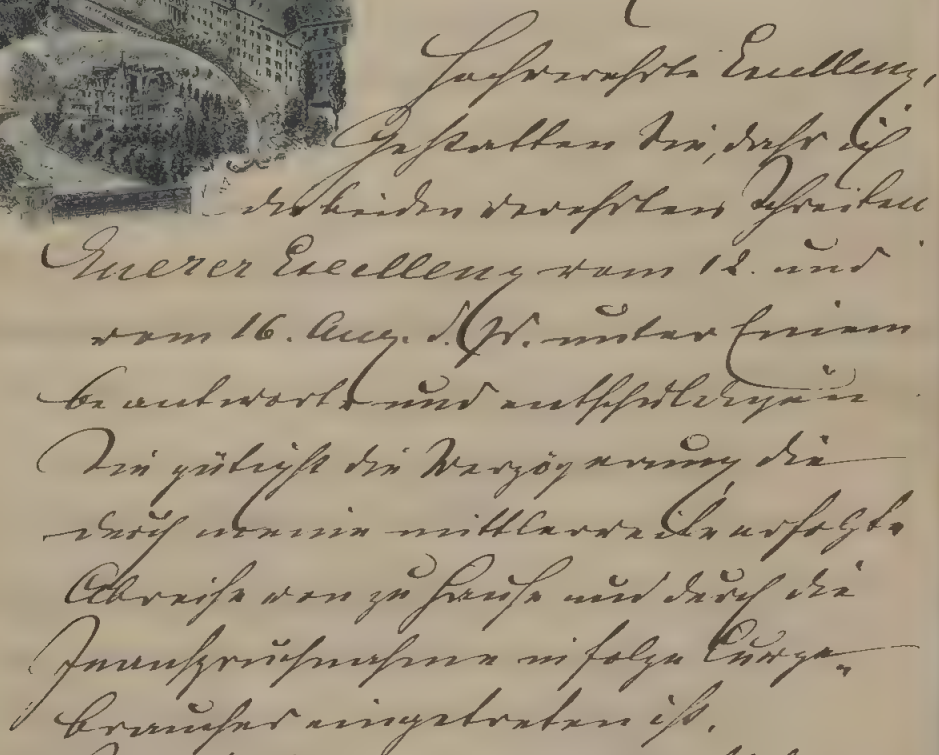 Hochverehrte Excellenz,
Gestatten Sie, daß ich
die beiden verehrten Schreiben
Euerer Excellenz vom 12. und
vom 16. Aug. d. Js. unter Einem
beantworte und entschuldigen
Sie gütigst die Verzögerung, die
durch meine mittlerweile erfolgte
Abreise von zu Hause und durch die
Inanspruchnahme infolge Curge-
brauches eingetreten ist.